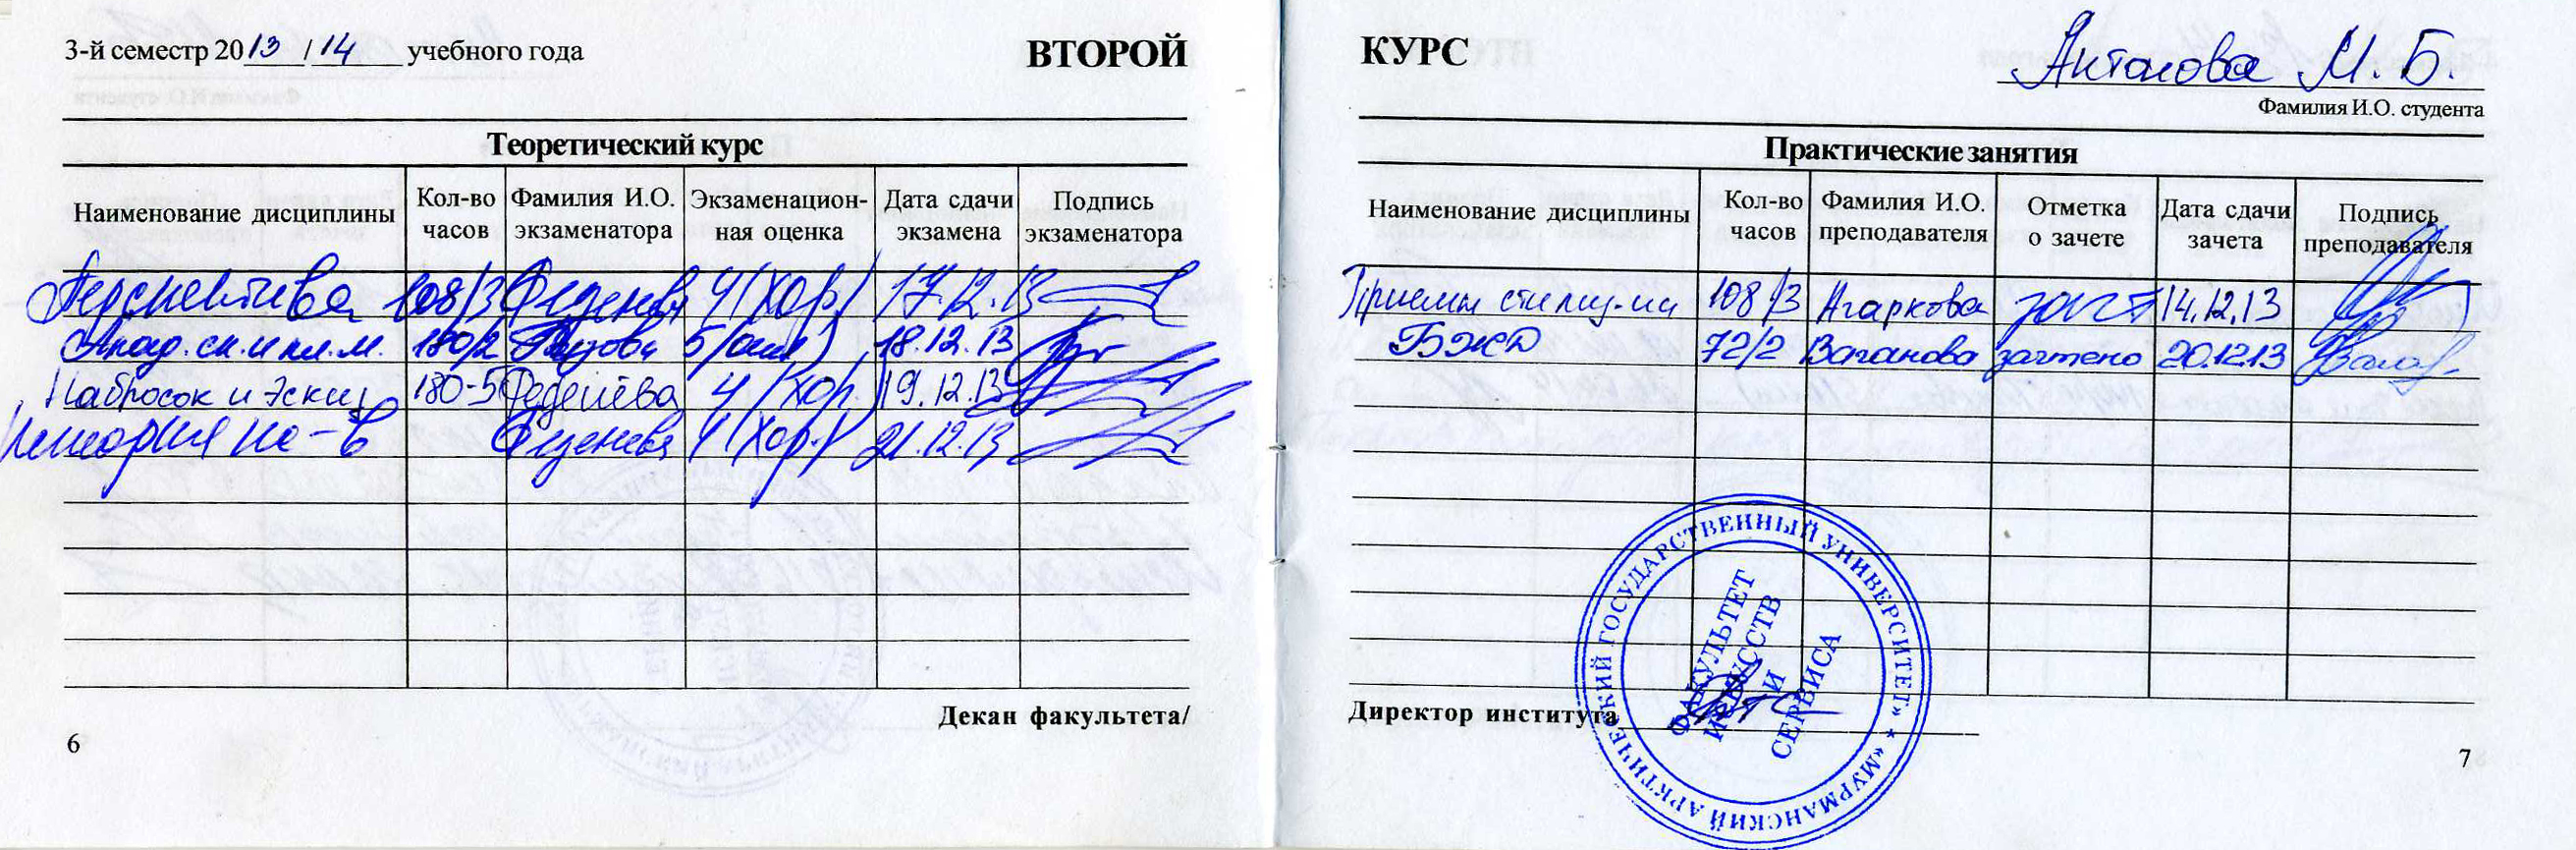 3-й семестр 2013/14 учебного года
ВТОРОЙ
Теоретический курс
Наименование дисциплины Кол-во часов Фамилия И.О. экзаменатора Экзаменацион-ная оценка Дата сдачи экзамена Подпись экзаменатора
Перспектива 108/3 4 (хор) 17.12.13
Акад. ск. и пл. м. 180/2 5 18.12.13
Набросок и эскиз 180-5 4 (хор) 19.12.13
История ис-в 4 (хор) 21.12.13
Декан факультета/
6
КУРС
Антонова М. Б.
Фамилия И.О. студента
Практические занятия
Наименование дисциплины Кол-во часов Фамилия И.О. преподавателя Отметка о зачете Дата сдачи зачета Подпись преподавателя
Приемы 108/3 Агаркова зачт 14.12.13
БЖД 72/2 Ваганова зачтено 20.12.13
«МУРМАНСКИЙ АРКТИЧЕСКИЙ ГОСУДАРСТВЕННЫЙ УНИВЕРСИТЕТ» *
ФАКУЛЬТЕТ
ИСКУССТВ
И
СЕРВИСА
Директор института
7